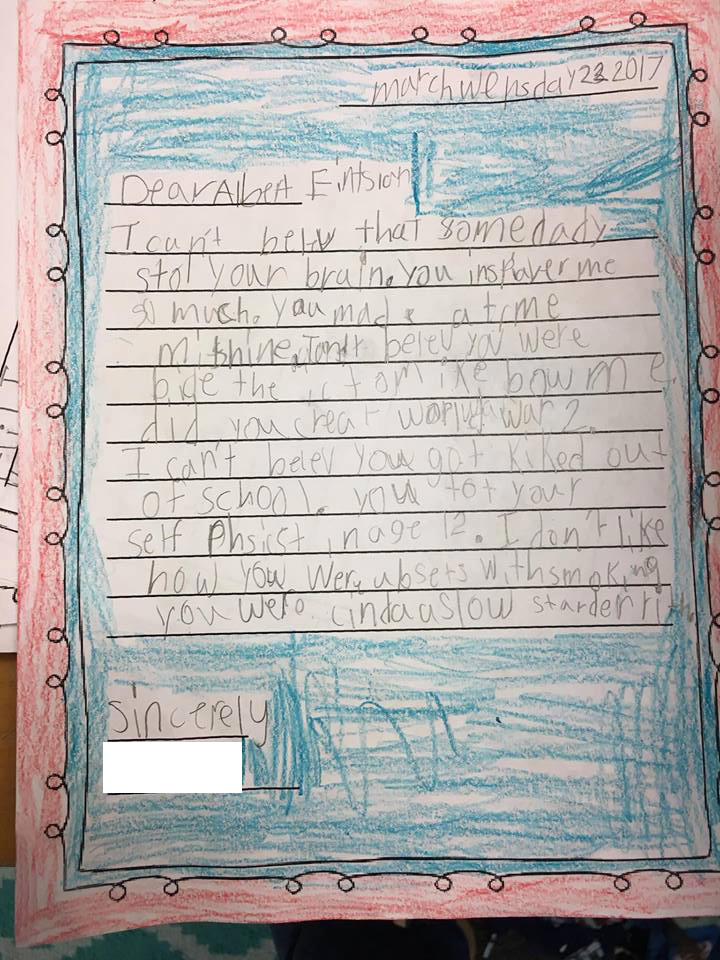 march wensday 22 2017
Dear Albert Eintsion
I can't belev that somedady
stol your brain. You inspayer me
so much. You made a time
mishine. I can't belev you were
the atomike bow me.
did you creat worlyd war 2.
I can't belev you got kiked out
of school. you tot your
self Phsicst in age 12. I don't like
how you were ubsets with smoking
you were cinda a slow starder
Sincerely